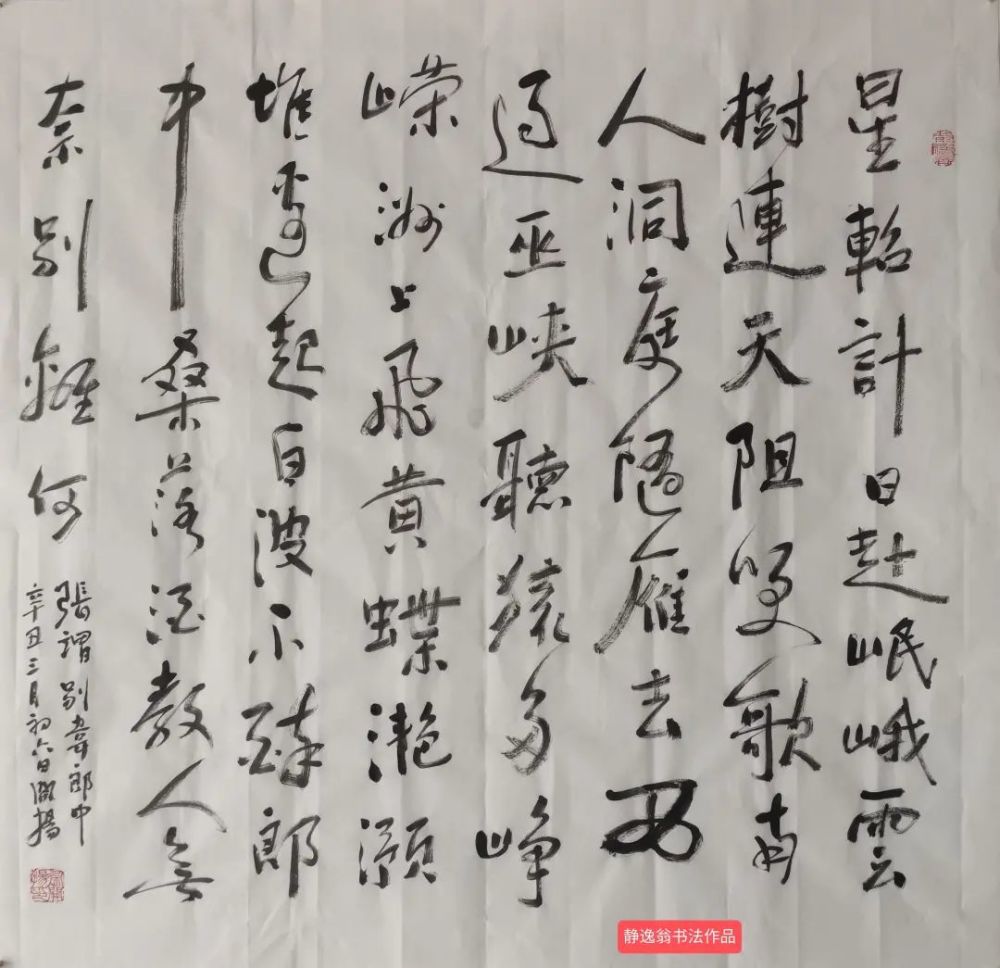 星軺計日赴岷峨雲
樹連天阻咲歌南
入洞庭隨雁去西
過巫峽聽猿多崢
嶸洲上飛黃蝶灩澦
堆邊起白波不醉郎
中桑落酒教人無
奈別離何
張謂別韋郎中
辛丑三月初六日
静逸翁书法作品